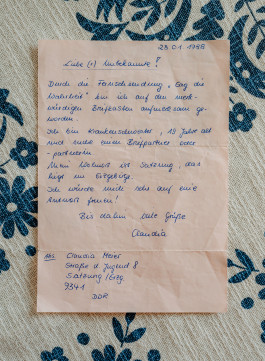 23.01.1988
Liebe (r) Unbekannte!
Durch die Fernsehsendung „Sag die
Wahrheit" bin ich auf den merk-
würdigen Briefkasten aufmerksam ge-
worden.
Ich bin Krankenschwester, 18 Jahre alt
und suche einen Briefpartner oder
-partnerin.
Mein Wohnort ist Satzung, das
liegt im Erzgebirge.
Ich würde mich sehr auf eine
Antwort freuen!
Bis dahin liebe Grüße
Claudia
Abs. Claudia Meier
Straße d. Jugend 8
Satzung / Erzg.
9341
DDR